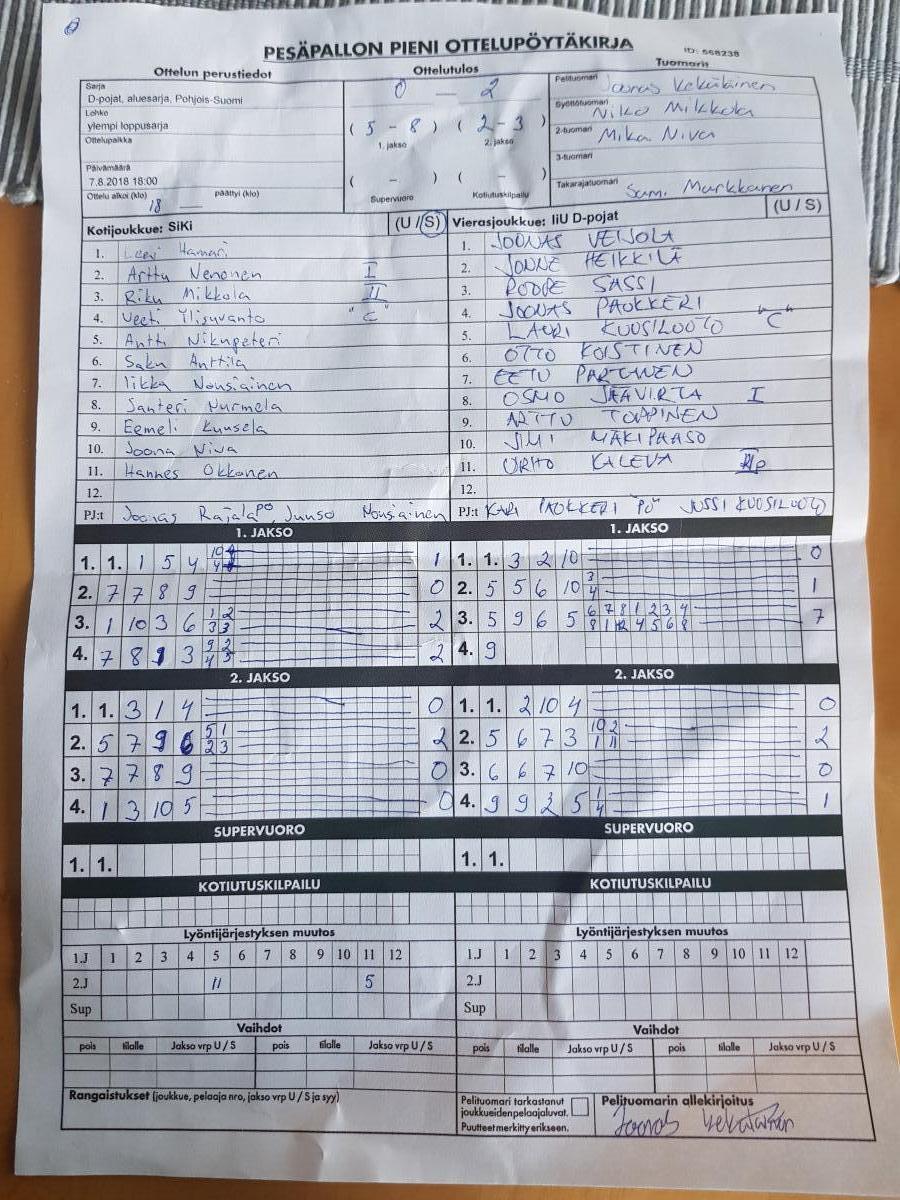 PESÄPALLON PIENI OTTELUPÖYTÄKIRJA
ID: 568238
Ottelun perustiedot Ottelutulos Tuomarit
Sarja
D-pojat, aluesarja, Pohjois-Suomi
Lohko
ylempi loppusarja
Ottelupaikka
Päivämäärä
7.8.2018 18:00
Ottelu alkoi (klo) 18 päättyi (klo)
0 — 2
( 5 - 8 ) ( 2 - 3 )
1. jakso 2. jakso
( - ) ( - )
Supervuoro Kotiutuskilpailu
Pelituomari Joonas Kekäläinen
Syöttötuomari Niko Mikkola
2-tuomari Mika Niva
3-tuomari
Takarajatuomari Sami Markkanen
Kotijoukkue: SiKi (U / S)
1. Leevi Hamari
2. Arttu Nenonen I
3. Riku Mikkola II
4. Veeti Ylisuvanto "C"
5. Antti Nikupeteri
6. Saku Anttila
7. Iikka Nousiainen
8. Santeri Nurmela
9. Eemeli Kuusela
10. Joona Niva
11. Hannes Okkonen
12.
PJ:t Joonas Rajala PÖ, Juuso Nousiainen
Vierasjoukkue: IiU D-pojat (U / S)
1. JOONAS VEIJOLA
2. JONNE HEIKKILÄ
3. ROOPE SASSI
4. JOONAS PAUKKERI
5. LAURI KUUSILUOTO "C"
6. OTTO KOISTINEN
7. EETU PARTANEN
8. OSMO JÄÄVIRTA I
9. ARTTU TOLPPINEN
10. JIMI MÄKIPAASO
11. URHO KALEVA
12.
PJ:t KARI PAUKKERI PÖ JUSSI KUUSILUOTO
1. JAKSO
1. 1. 1 5 4 1
2. 7 7 8 9 0
3. 1 10 3 6 1 2 3 3 2
4. 7 8 1 3 9 2 4 3 2
1. JAKSO
1. 1. 3 2 10 0
2. 5 5 6 10 3 4 1
3. 5 9 6 5 6 7 8 1 2 3 4 7
4. 9
2. JAKSO
1. 1. 3 1 4 0
2. 5 7 9 6 5 1 2 3 2
3. 7 7 8 9 0
4. 1 3 10 5 0
2. JAKSO
1. 1. 2 10 4 0
2. 5 6 7 3 10 2 1 11 2
3. 6 6 7 10 0
4. 9 9 2 5 1 4 1
SUPERVUORO SUPERVUORO
1. 1. 1. 1.
KOTIUTUSKILPAILU KOTIUTUSKILPAILU
Lyöntijärjestyksen muutos Lyöntijärjestyksen muutos
1.J 1 2 3 4 5 6 7 8 9 10 11 12 1.J 1 2 3 4 5 6 7 8 9 10 11 12
2.J 11 5 2.J
Sup Sup
Vaihdot Vaihdot
pois tilalle Jakso vrp U / S pois tilalle Jakso vrp U / S pois tilalle Jakso vrp U / S pois tilalle Jakso vrp U / S
Rangaistukset (joukkue, pelaaja nro, jakso vrp U / S ja syy)
Pelituomari tarkastanut
joukkueiden pelaajaluvat.
Puutteet merkitty erikseen.
Pelituomarin allekirjoitus
Joonas Kekäläinen